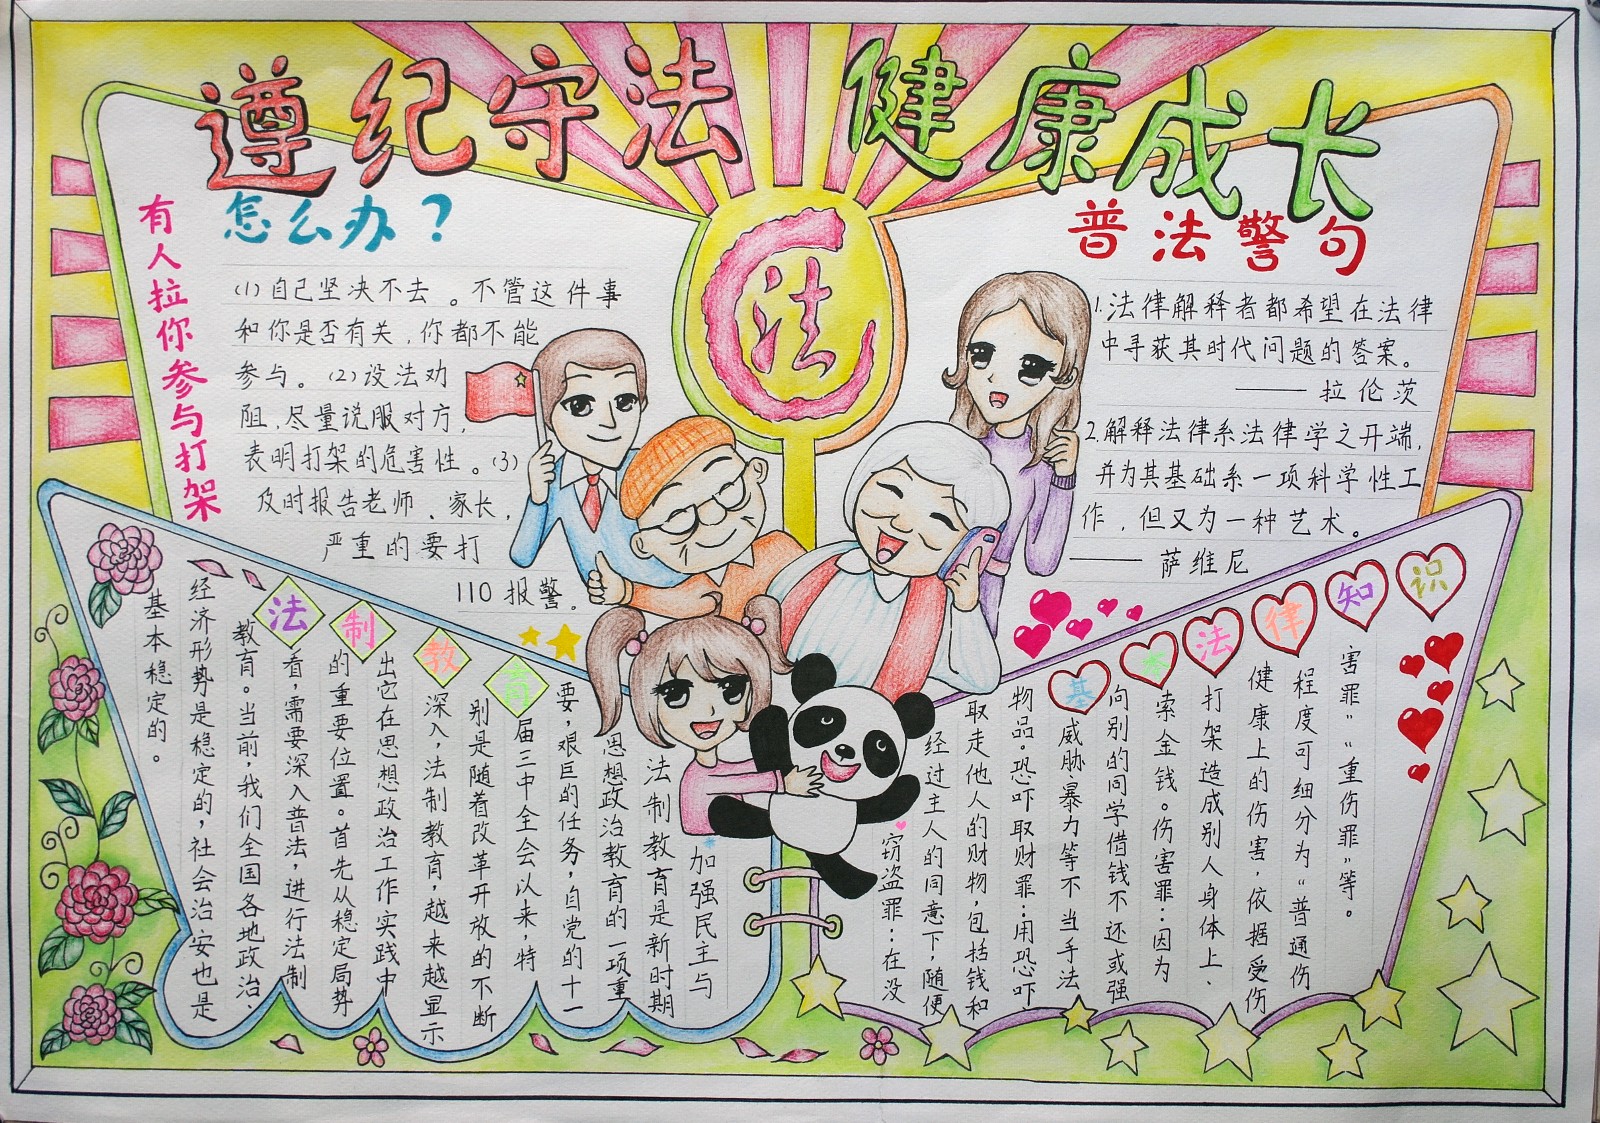 遵纪守法 健康成长
法
有人拉你参与打架
怎么办？
(1)自己坚决不去。不管这件事
和你是否有关，你都不能
参与。(2)设法劝
阻，尽量说服对方，
表明打架的危害性。(3)
及时报告老师、家长，
严重的要打
110报警。
普法警句
1.法律解释者都希望在法律
中寻获其时代问题的答案。
——拉伦茨
2.解释法律系法律学之开端，
并为其基础系一项科学性工
作，但又为一种艺术。
——萨维尼
法制教育
加强民主与
法制教育是新时期
思想政治教育的一项重
要，艰巨的任务，自党的十一
届三中全会以来，特
别是随着改革开放的不断
深入，法制教育，越来越显示
出它在思想政治工作实践中
的重要位置。首先从稳定局势
看，需要深入普法，进行法制
教育。当前，我们全国各地政治、
经济形势是稳定的，社会治安也是
基本稳定的。
基本法律知识
窃盗罪：在没
经过主人的同意下，随便
取走他人的财物，包括钱和
物品。恐吓取财罪：用恐吓、
威胁暴力等不当手法
向别的同学借钱不还或强
索金钱。伤害罪：因为
打架造成别人身体上、
健康上的伤害，依据受伤
程度可细分为“普通伤
害罪”“重伤罪”等。